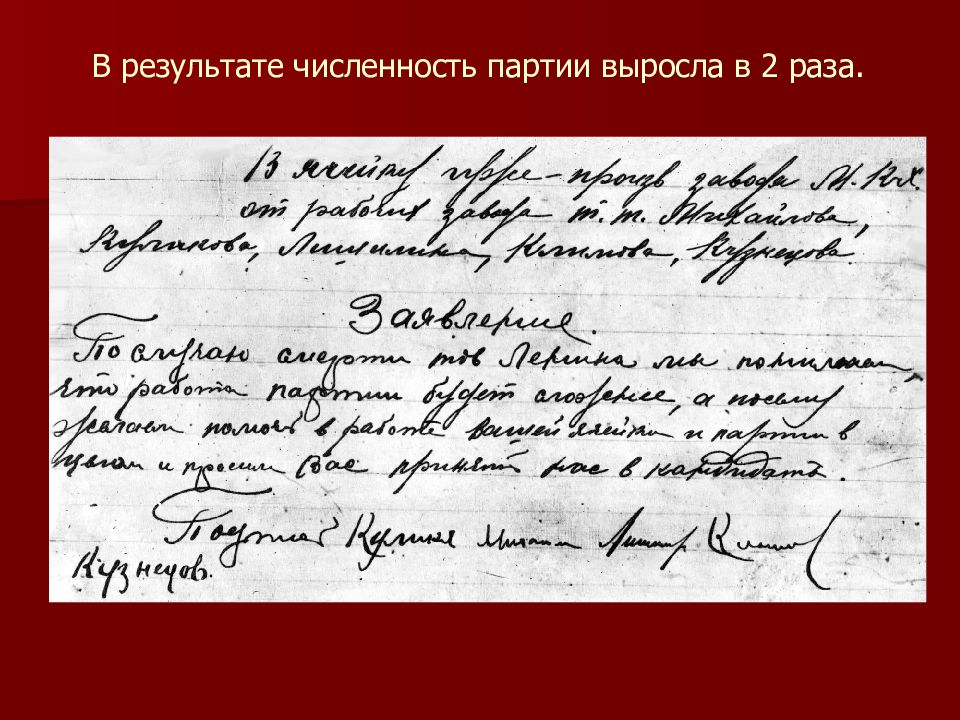 В результате численность партии выросла в 2 раза.
В ячейку завода М.
от рабочих завода т.т. Михайлова,
Куликова, Лишилина, Климова, Кузнецова
Заявление.
По случаю смерти тов Ленина мы понимаем,
что работа партии будет сложнее, а посему
желаем помоч в работе вашей ячейки и партии в
целом и просим Вас принять нас в кандидаты.
Кузнецов.